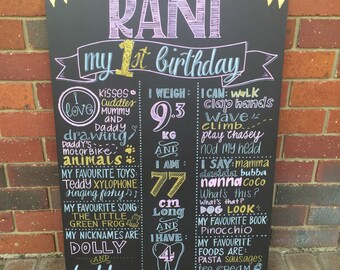 RANI
my 1st birthday
I LOVE
KISSES
Cuddles
MUMMY
AND
DADDY
drawing
DADDY'S
MOTORBIKE
animals
MY FAVOURITE TOYS:
Teddy XYLOPHONE
singing fishy
MY FAVOURITE SONG
THE LITTLE
GREEN FROG
MY NICKNAMES ARE
DOLLY
AND
I WEIGH:
9.3
KG
AND
I AM:
77
cm
Long
AND
I HAVE
4
I CAN: walk
clap hands
wave
climb
play chasey
nod my head
I SAY: mamma
bubba
nanna coco
What's this?
what's that?
DOG LOOK
MY FAVOURITE BOOK
Pinocchio
MY FAVOURITE
FOODS ARE:
PASTA sausages
ice cream